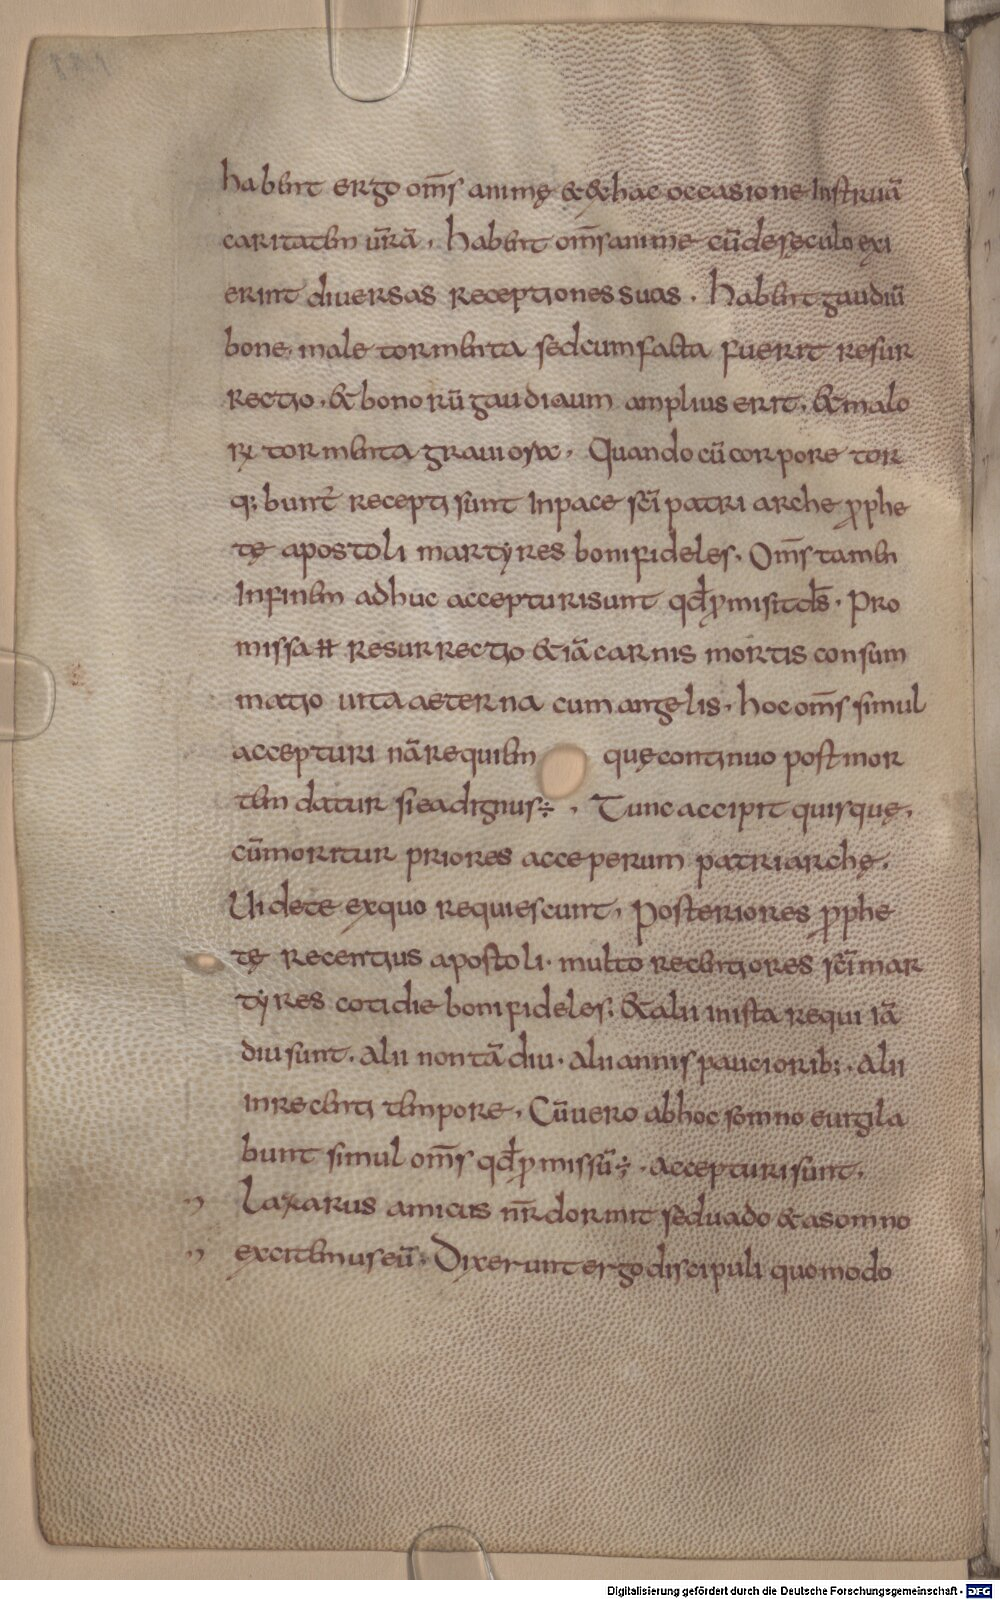 habent ergo om̄s animę & ex hac occasione Instruā
caritatem ur̄ā. habent om̄s animę cū de sęculo exi
erint diversas receptiones suas. habent gaudiū
bone. male tormenta sed cum facta fuerit resur
rectio. & bonorū gaudiaum amplius erit. & malo
rū tormenta graviora. Quando cū corpore tor
q; bunt̄ recepti sunt In pace sc̄i patri arche p̱phe
tę apostoli martyres boni fideles. Om̄s tamen
In finem adhuc accepturi sunt qđ p̱misit d̄s. Pro
missa ÷ resurrectio & iā carnis mortis consum
matio vita aeterna cum angelis. hoc om̄s simul
accepturi nā requiem quę continuo post mor
tem datur si ea dignus ÷. Tunc accipit quisquę.
cū moritur priores acceperum patriarchę.
Videte ex quo requiescunt. Posteriores p̱phe
tę recentius apostoli. multo recentiores sc̄i mar
tyres cotidie boni fideles. & alii in ista requi iā
diu sunt. alii non tā diu. alii annis paucioribꝫ. alii
in recenti tempore. Cū vero ab hoc somno evigila
bunt simul om̄s qđ p̱missū ÷. accepturi sunt.
” Lazarus amicus nr̄ dormit sed vado & a somno
” excitem us eū. Dixerunt ergo discipuli quomodo
Digitalisierung gefördert durch die Deutsche Forschungsgemeinschaft - DFG